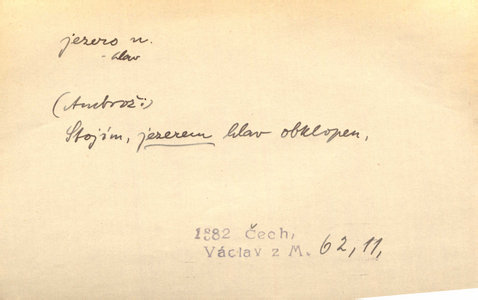 jezero n.
- hlav
(Ambrož:)
Stojím, jezerem hlav obklopen,
1882 Čech,
Václav z M. 62,11,